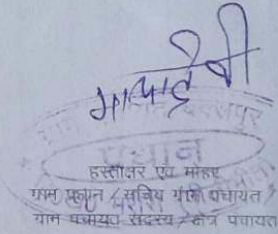 माया देवी
प्रधान
हस्ताक्षर एवं मोहर
ग्राम प्रधान / सचिव ग्राम पंचायत /
ग्राम पंचायत सदस्य / क्षेत्र पंचायत